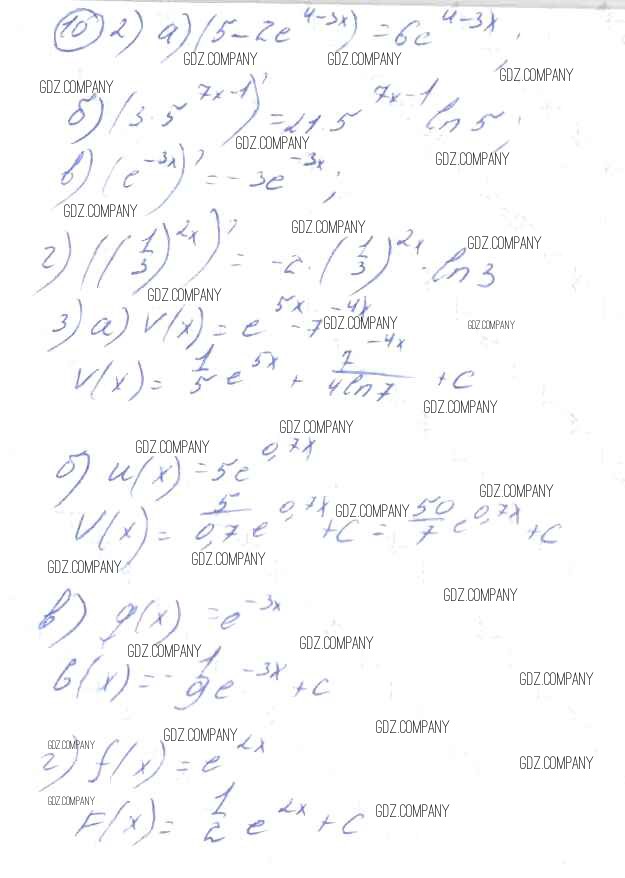 10 2) а) (5-2e^{4-3x}) = 6e^{4-3x};
GDZ.COMPANY GDZ.COMPANY
GDZ.COMPANY GDZ.COMPANY
б) (3·5^{7x-1})' = 21·5^{7x-1} ln 5;
GDZ.COMPANY GDZ.COMPANY
в) (e^{-3x})' = -3e^{-3x};
GDZ.COMPANY GDZ.COMPANY GDZ.COMPANY
г) ((1/3)^{2x})' = -2·(1/3)^{2x}·ln 3
GDZ.COMPANY
3) а) V(x) = e^{5x} - 7^{-4x}
GDZ.COMPANY GDZ.COMPANY
V(x) = 1/5 e^{5x} + 7^{-4x}/4ln7 + C
GDZ.COMPANY
GDZ.COMPANY
GDZ.COMPANY
б) u(x) = 5e^{0,7x}
GDZ.COMPANY GDZ.COMPANY
V(x) = 5/0,7 e^{0,7x} + C = 50/7 e^{0,7x} + C
GDZ.COMPANY GDZ.COMPANY
GDZ.COMPANY
в) g(x) = e^{-3x}
GDZ.COMPANY GDZ.COMPANY
G(x) = -1/9 e^{-3x} + C
GDZ.COMPANY
GDZ.COMPANY GDZ.COMPANY
г) f(x) = e^{2x}
GDZ.COMPANY GDZ.COMPANY
GDZ.COMPANY GDZ.COMPANY
F(x) = 1/2 e^{2x} + C